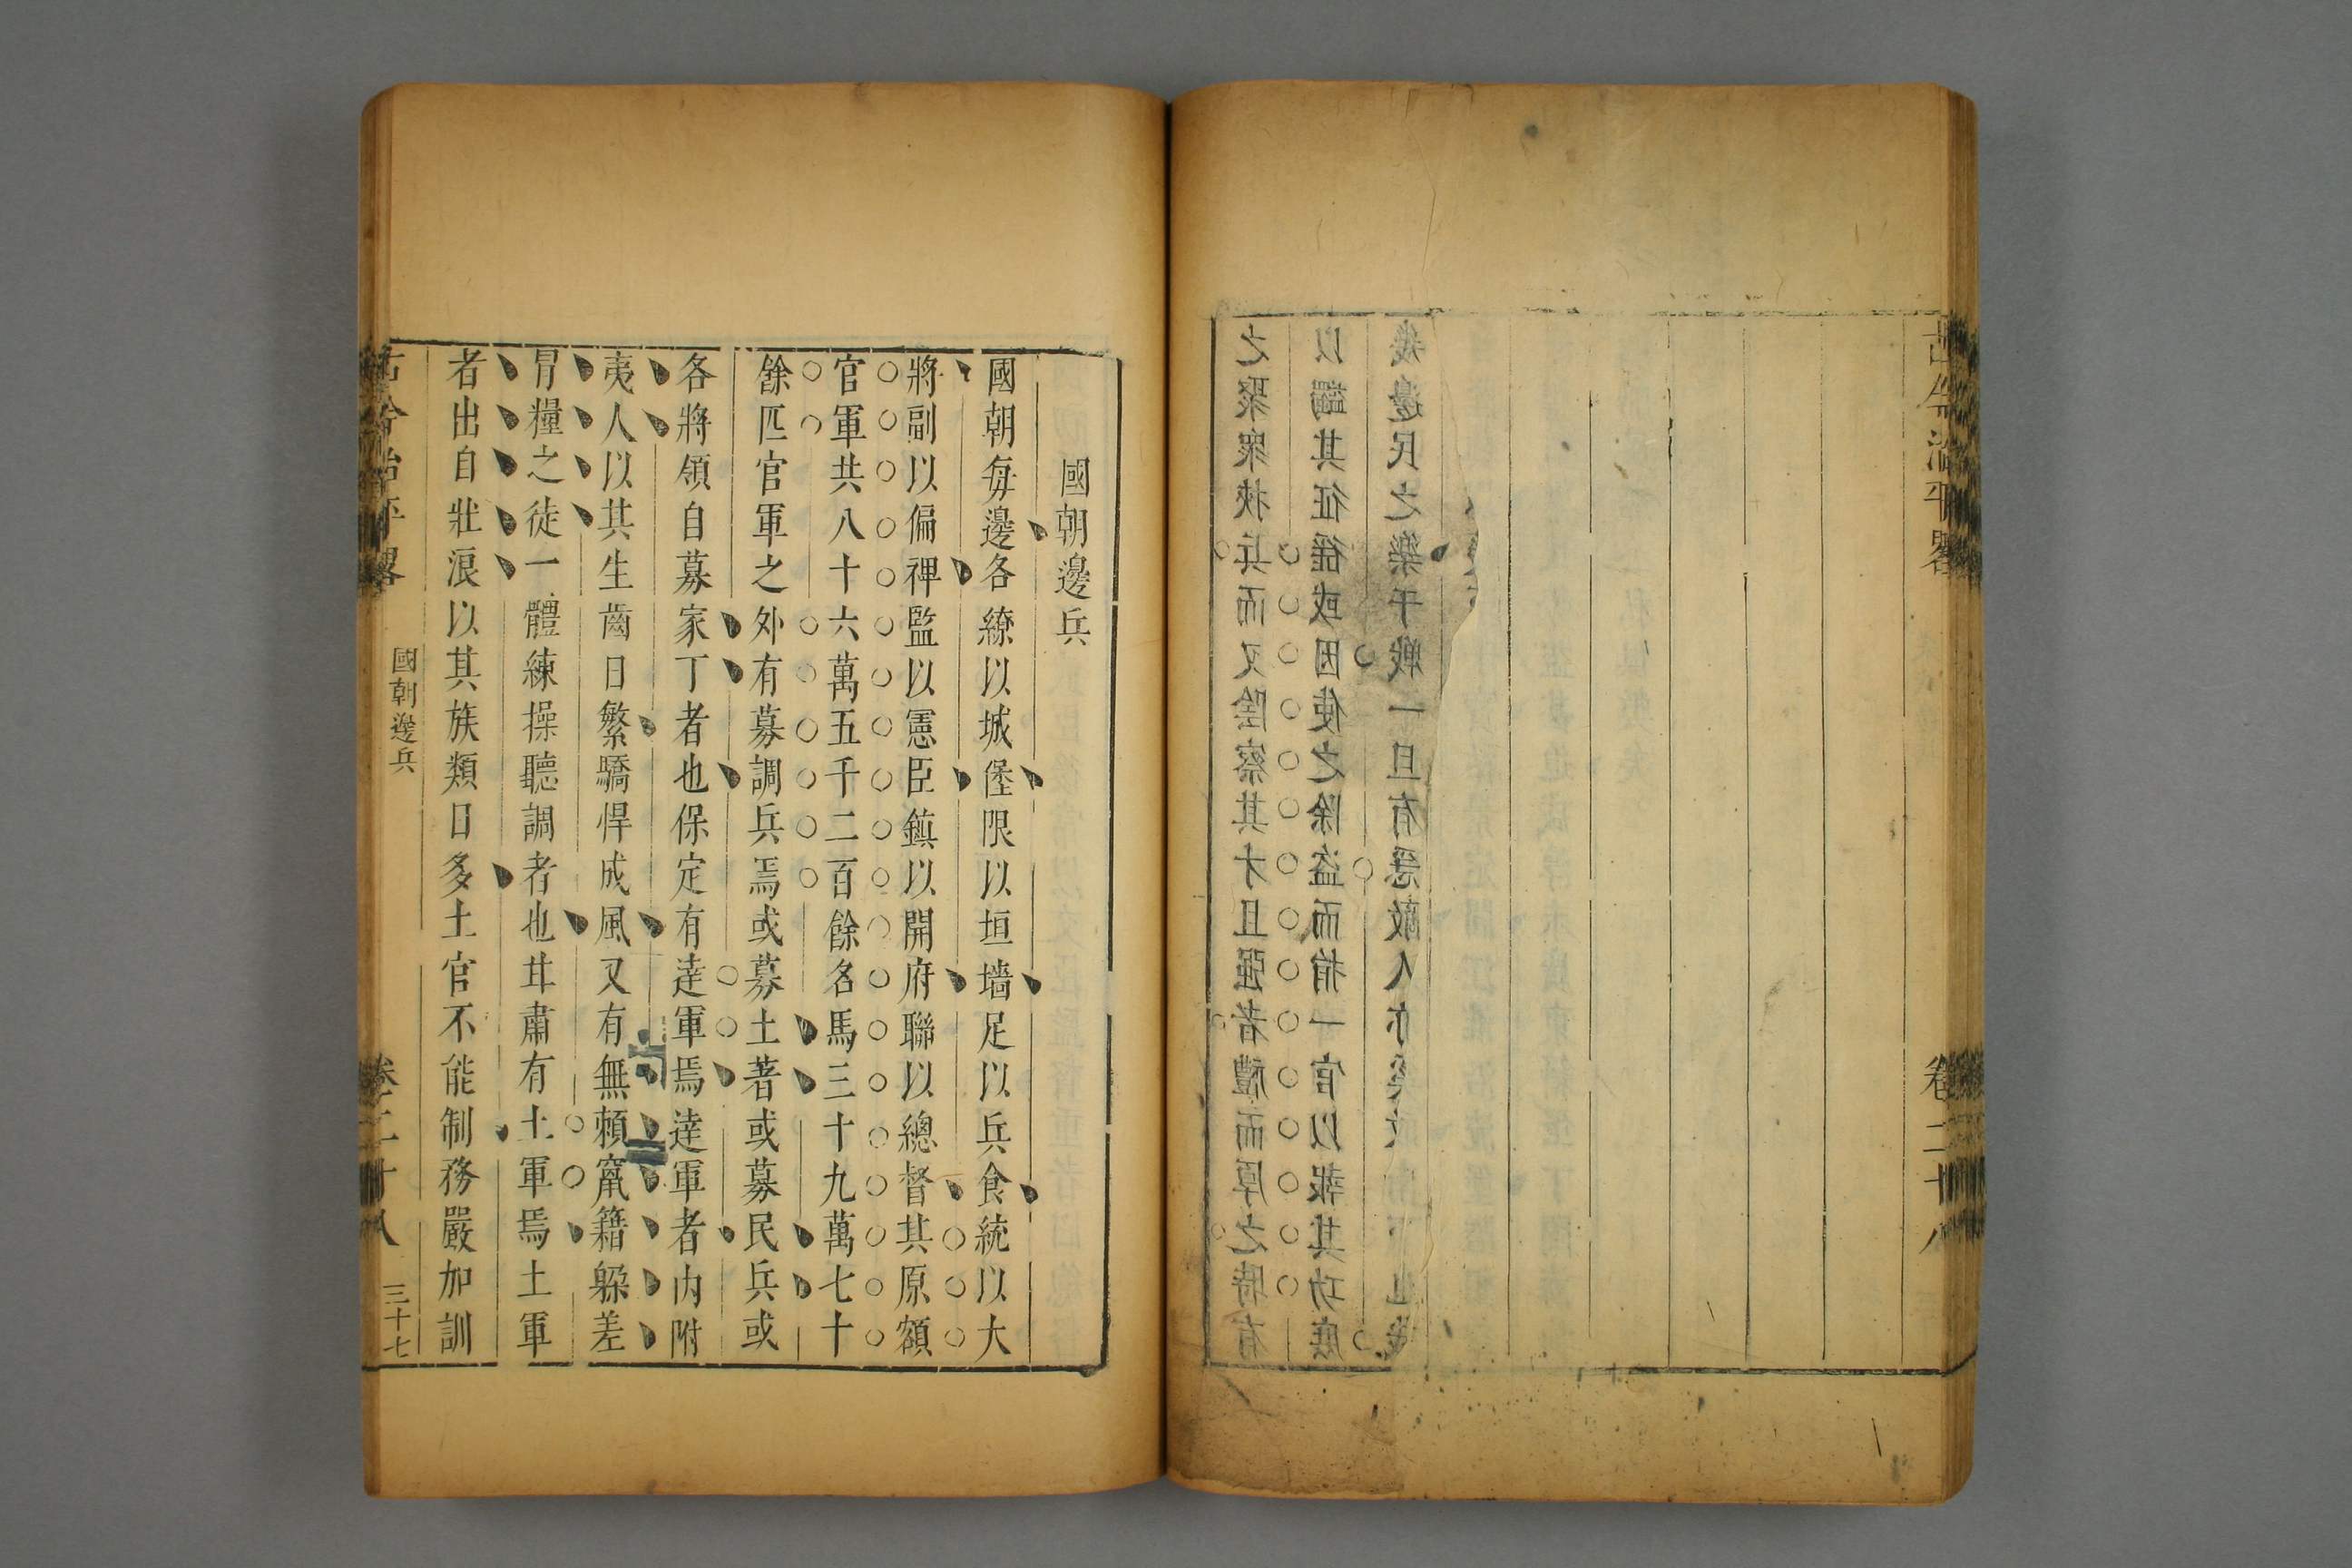 古今治平畧
卷二十八
之聚衆挾兵而又陰察其才且强者禮而厚之時有
以蠲其征徭或因使之除盜而捐一官以報其功庶
幾邊民之樂于戰一旦有急敵人亦
國朝邊兵
國朝每邊各繚以城堡限以垣墻足以兵食統以大
將副以偏裨監以憲臣鎮以開府聯以總督其原額
官軍共八十六萬五千二百餘名馬三十九萬七十
餘匹官軍之外有募調兵焉或募土著或募民兵或
各將領自募家丁者也保定有達軍焉達軍者內附
夷人以其生齒日繁驕悍成風又有無賴竄籍躱差
冒糧之徒一體練操聽調者也甘肅有土軍焉土軍
者出自壯浪以其族類日多土官不能制務嚴加訓
古今治平畧
國朝邊兵
卷二十八
三十七